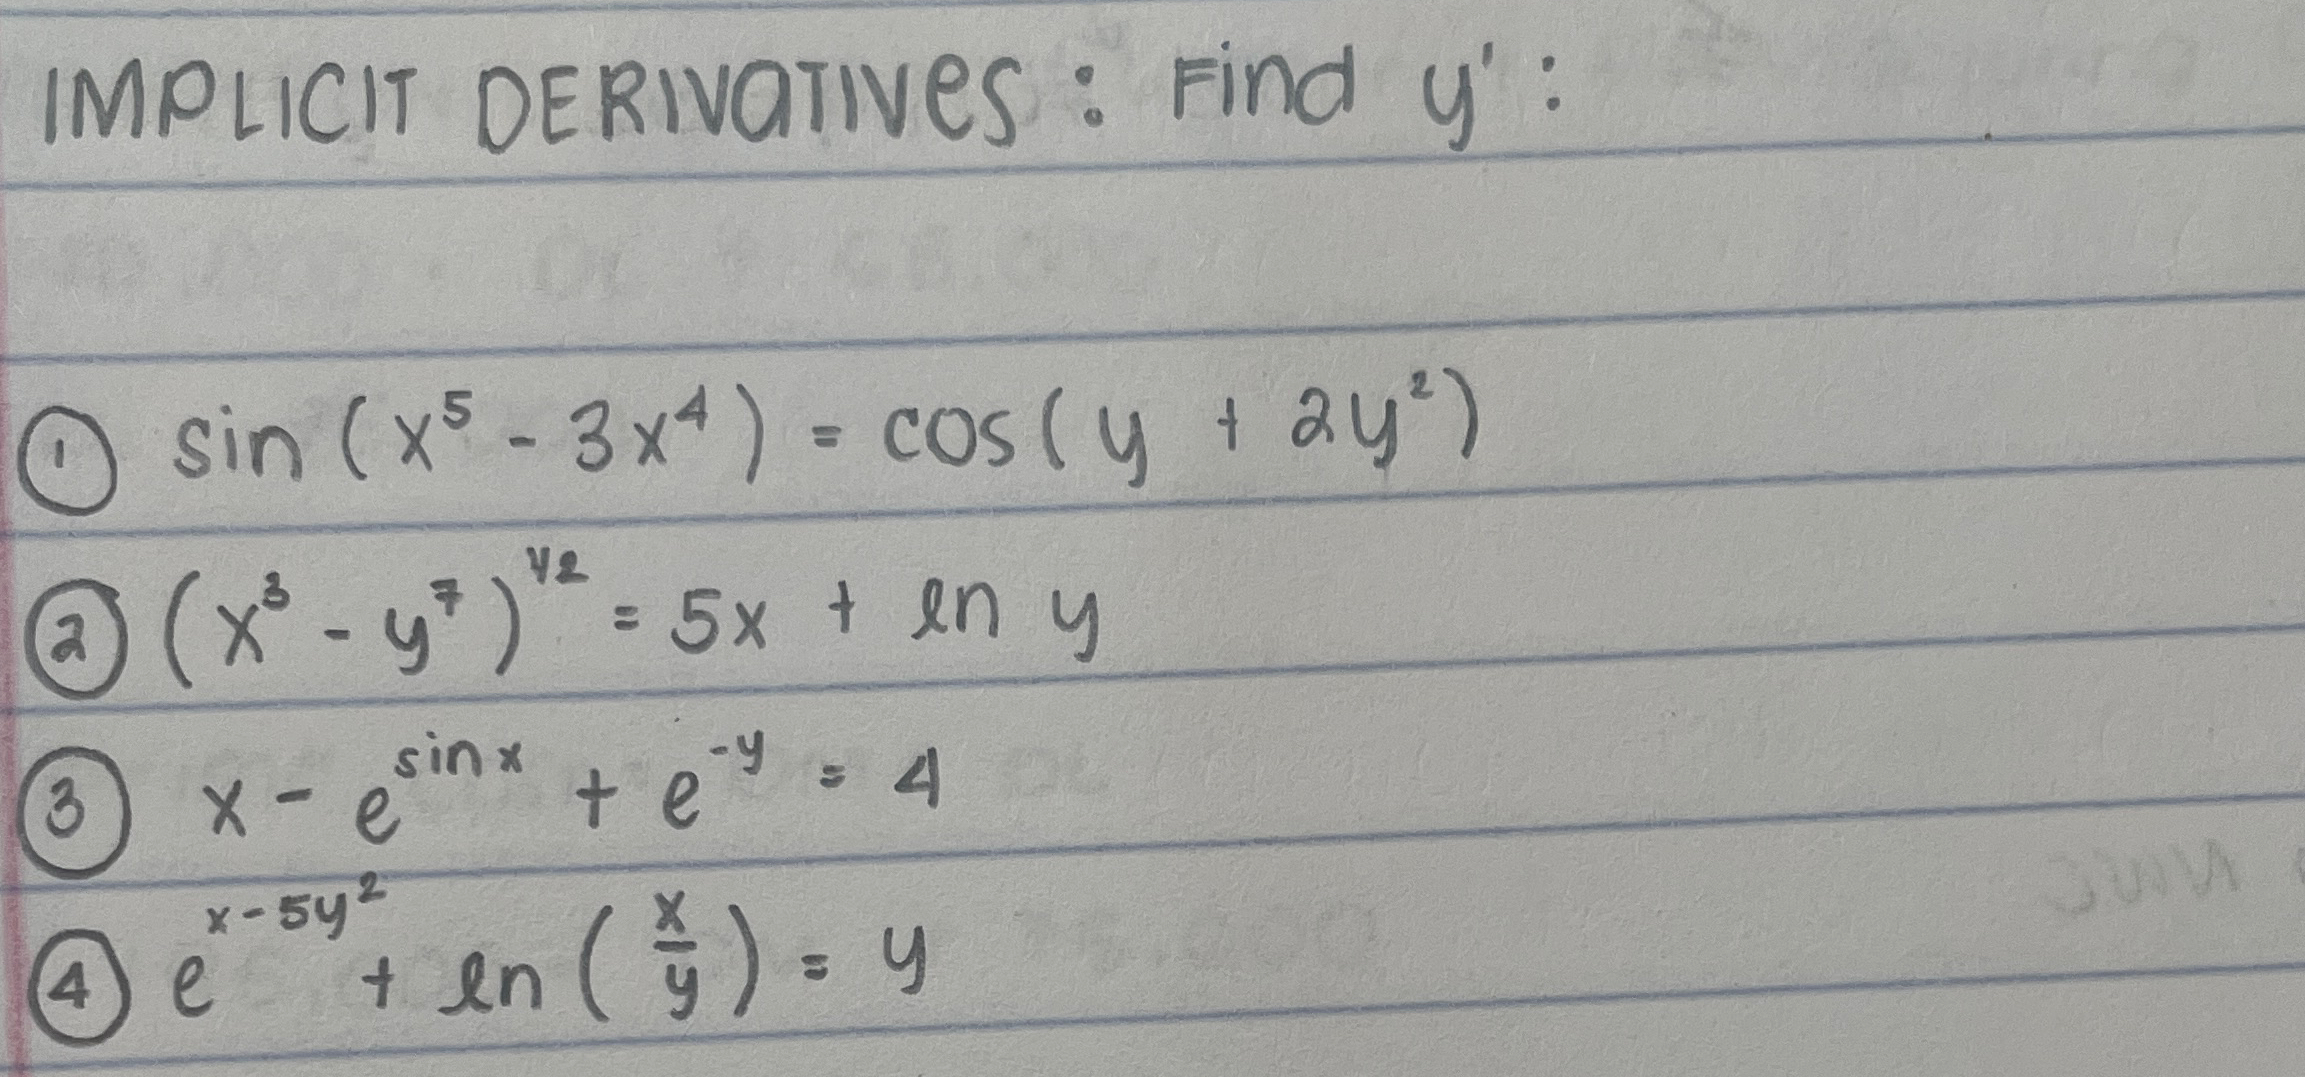 IMPLICIT DERIVATIVES: Find y':
① sin (x⁵ - 3x⁴) = cos(y + 2y²)
② (x³ - y⁷)^1/2 = 5x + ln y
③ x - e^sin x + e^-y = 4
④ e^x-5y² + ln (x/y) = y